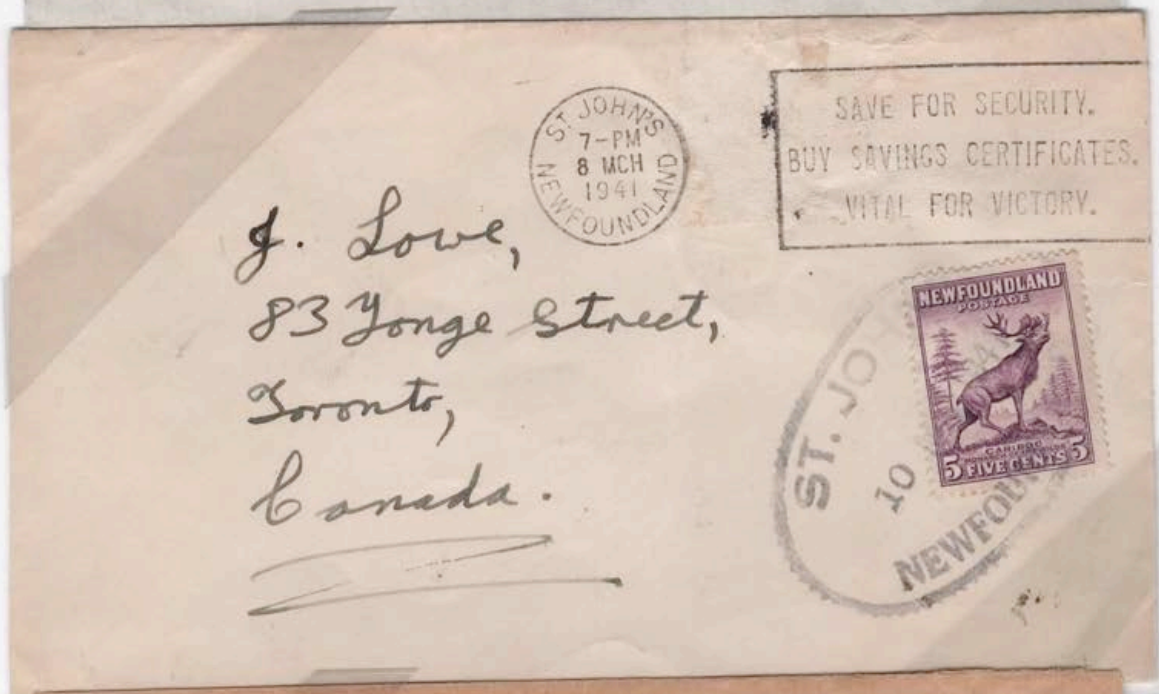 ST. JOHN'S
7-PM
8 MCH
1941
NEWFOUNDLAND
SAVE FOR SECURITY.
BUY SAVINGS CERTIFICATES.
VITAL FOR VICTORY.
J. Lowe,
83 Yonge Street,
Toronto,
Canada.
NEWFOUNDLAND
POSTAGE
CARIBOU
5 FIVE CENTS 5
ST. JO
10
NEWFOU